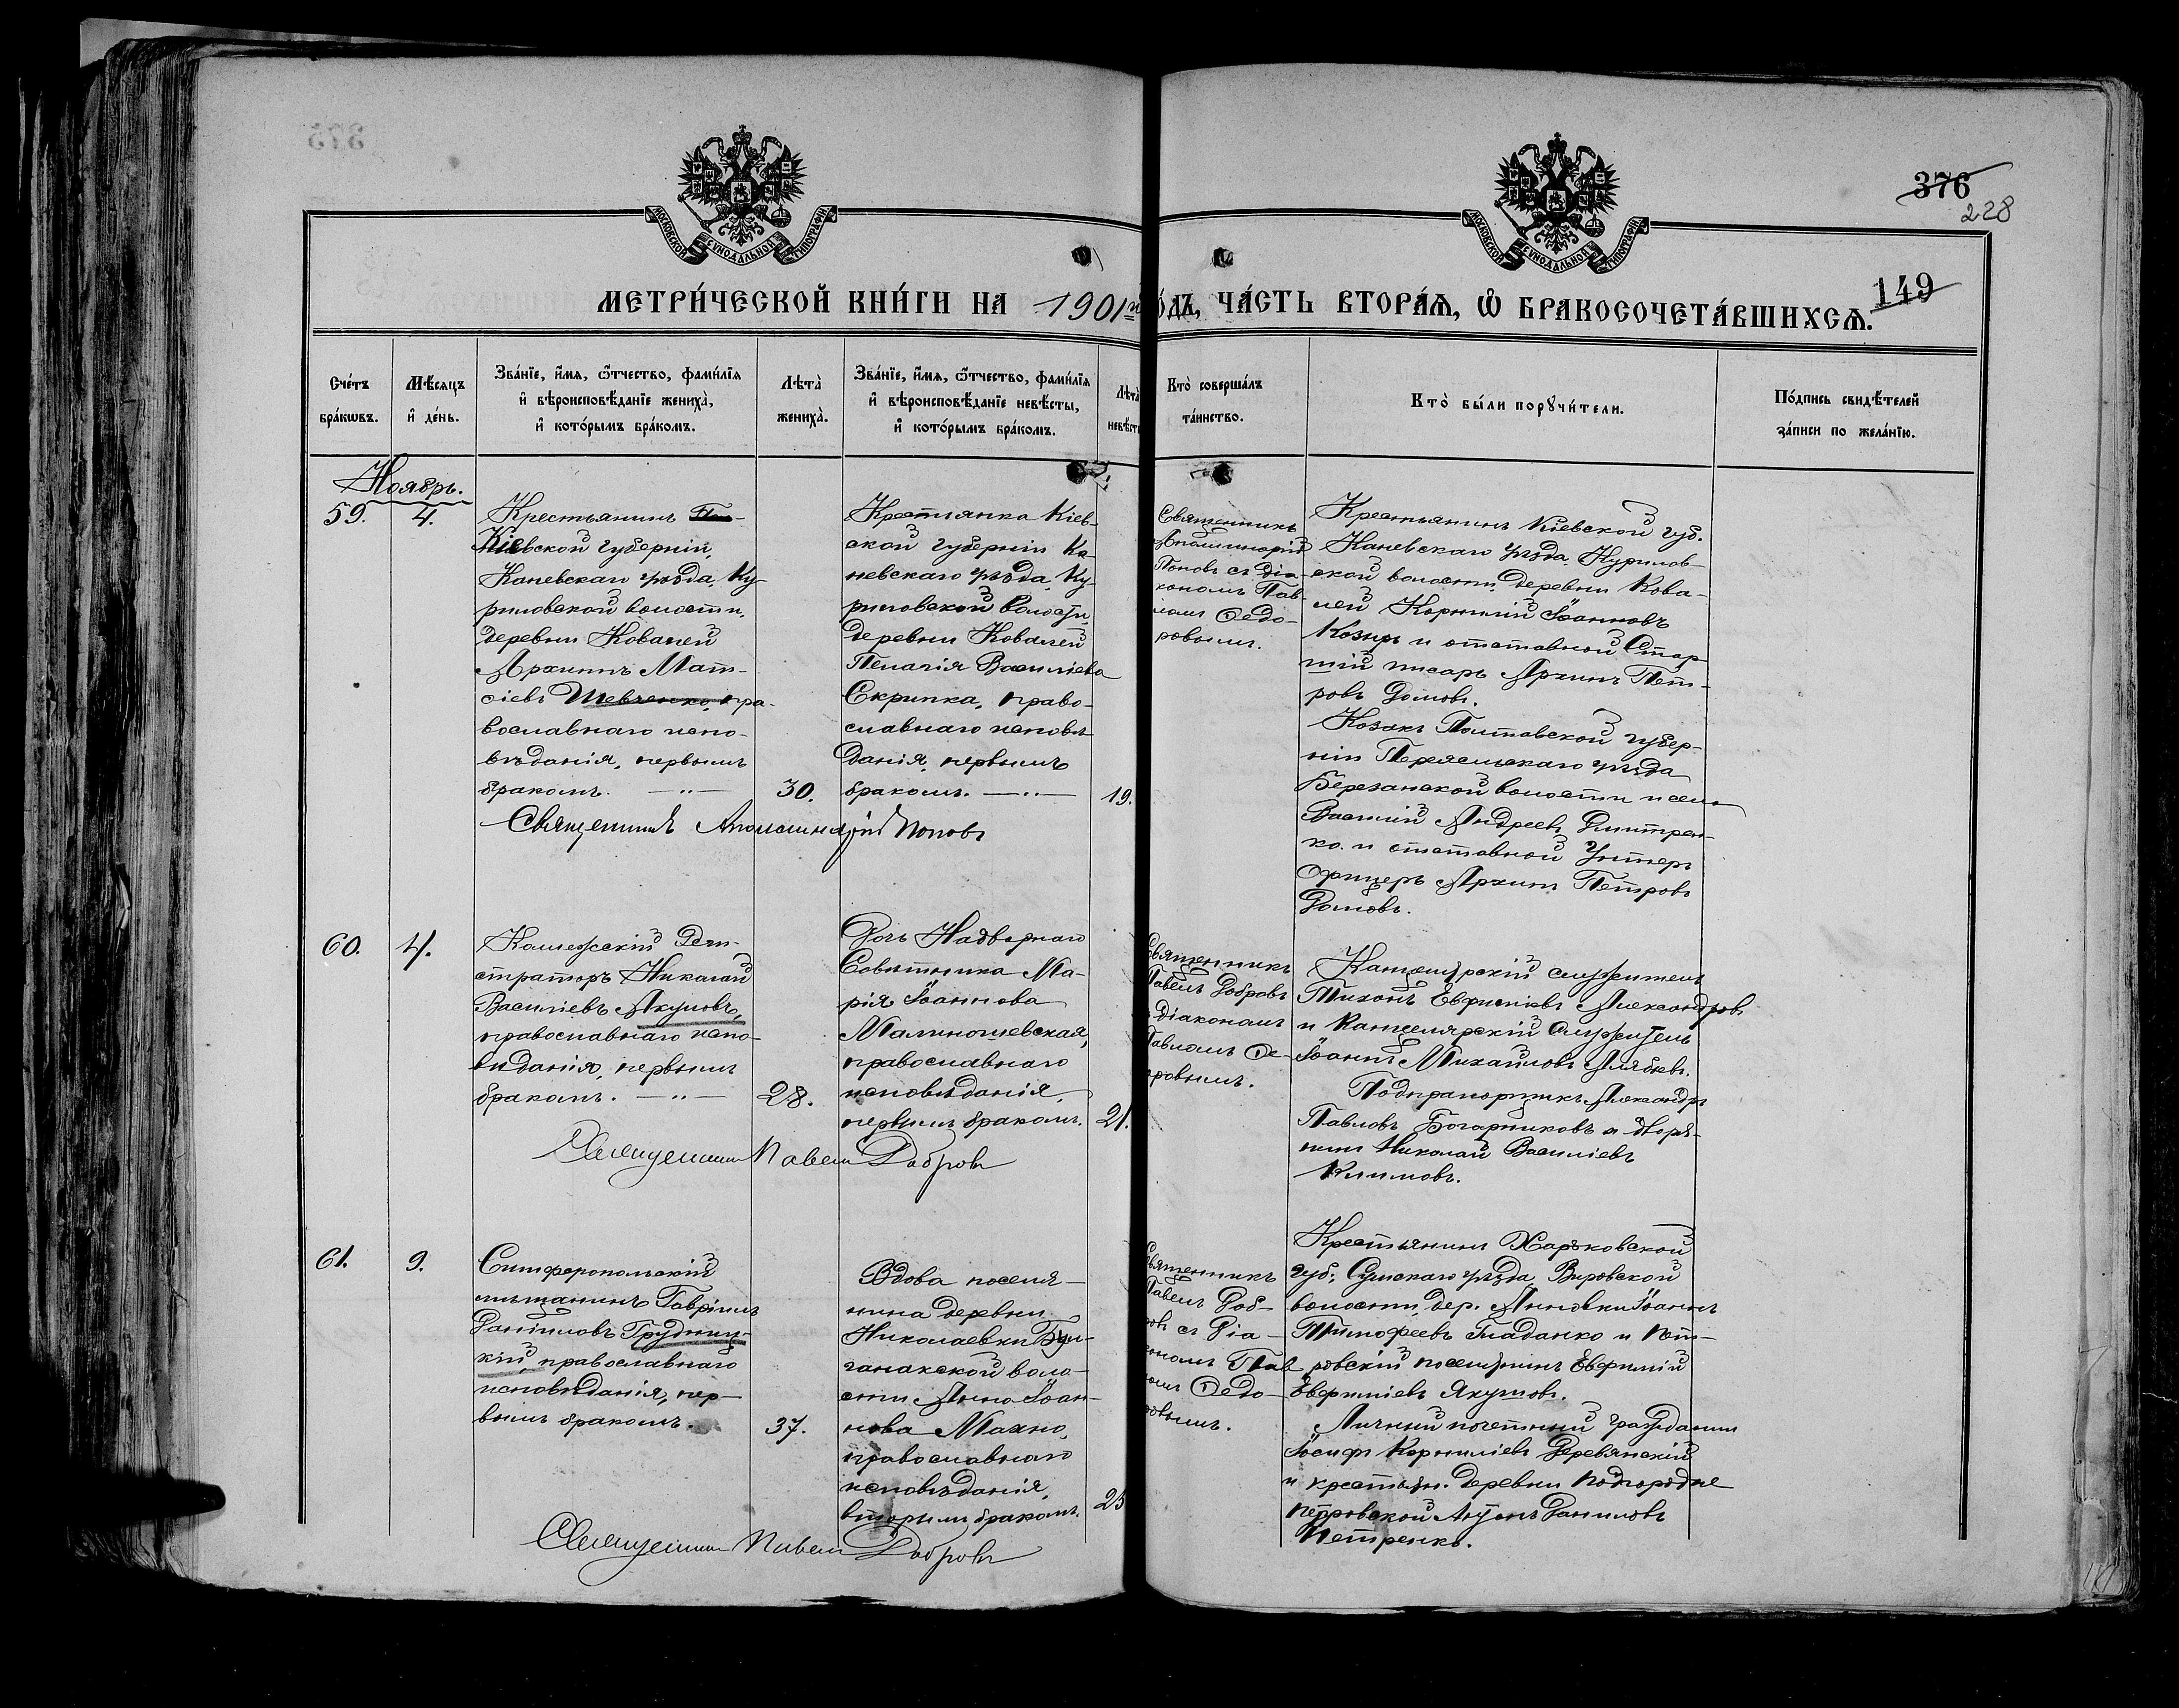 376
228
149
МЕТРИ́ЧЕСКОЙ КНИ́ГИ НА 1901й ГО́ДЪ, ЧА́СТЬ ВТОРА́Ѧ, Ѡ҆ БРАКОСОЧЕТА́ВШИХСѦ.
Сче́тъ
бра́кѡвъ.
Мѣ́сяцъ
и҆ де́нь.
Зва́нїе, и҆́мѧ, ѻ҆́тчество, фами́лїѧ
и҆ вѣроисповѣ́данїе жениха̀,
и҆ кото́рымъ бра́комъ.
Лѣта̀
жениха̀.
Зва́нїе, и҆́мѧ, ѻ҆́тчество, фами́лїѧ
и҆ вѣроисповѣ́данїе невѣ́сты,
и҆ кото́рымъ бра́комъ.
Лѣта̀
невѣст
Кто̀ соверша́лъ
та́инство.
Кто̀ бы́ли порꙋчи́тели.
По́дпись свидѣ́телей
за́писи по жела́нїю.
Ноябрь.
59.
4.
Крестьянинъ
Кіевской губерніи,
Каневскаго уѣзда, Ку-
риловской волости,
деревни Ковалей
Архипъ Мат-
сіевъ Шевченко, пра-
вославнаго испо-
вѣданія, первымъ
бракомъ. —"—
30.
Крестьянка Кіев-
ской губерніи Ка-
невскаго уѣзда, Ку-
риловской волости,
деревни Ковалей
Пелагія Васильева
Скрипка, право-
славнаго исповѣ-
данія, первымъ
бракомъ. —"—
19.
Священникъ
Аполлинарій
Поповъ съ діа-
кономъ Пав-
ломъ Ѳедо-
ровымъ.
Крестьянинъ Кіевской губ.
Каневскаго уѣзда, Курилов-
ской волости, деревни Кова-
лей Корнилій Іоанновъ
Козырь и отставной Стар-
шій писарь Архипъ Пет-
ровъ Домовъ.
Козакъ Полтавской губер-
ніи Переяславскаго уѣзда
Березанской волости и села
Василій Андреевъ Дмитрен-
ко и отставной Унтеръ
Офицеръ Архипъ Петровъ
Домовъ.
Священникъ Аполлинарій Поповъ
60.
4.
Коллежскій Реги-
страторъ Николай
Василіевъ Акуловъ,
православнаго испо-
вѣданія, первымъ
бракомъ. —"—
28.
Дочь Надворнаго
Совѣтника Ма-
рія Іоаннова
Малиношевская,
православнаго
исповѣданія,
первымъ бракомъ.
21.
Священникъ
Павелъ Добровъ
діакономъ
Павломъ Ѳе-
оровымъ.
Канцелярскій служитель
Тихонъ Евфиміевъ Александровъ
и Канцелярскій Служитель
Іоаннъ Михаиловъ Алябьевъ.
Подпрапорщикъ Александръ
Павловъ Богарниковъ и дворя-
нинъ Николай Василіевъ
Климовъ.
Священникъ Павелъ Добровъ
61.
9.
Симферопольскій
мѣщанинъ Гавріилъ
Даніиловъ Грудниц-
кій, православнаго
исповѣданія, пер-
вымъ бракомъ.
37.
Вдова поселя-
нина деревни
Николаевки Бул-
ганакской воло-
сти Анна Іоан-
нова Махно,
православнаго
исповѣданія,
вторымъ бракомъ.
25
Священникъ
Павелъ Доб-
ровъ съ Діа-
кономъ Пав
ломъ Ѳедо-
ровымъ.
Крестьянинъ Харьковской
губ., Сумскаго уѣзда, Вировской
волости, дер. Линовки Іоаннъ
Тимофеевъ Гладанко и Пет-
ровскій поселянинъ Евфимій
Евфиміевъ Якушовъ.
Личный почетный гражданинъ
Іосифъ Корниліевъ Деревянскій
и крестьян. деревни Подгородне
Петровской Антонъ Даниловъ
Петренко.
Священникъ Павелъ Добровъ